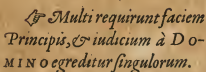 ☞ Multi requirunt faciem
Principis, & iudicium à Do-
MINO egreditur singulorum.